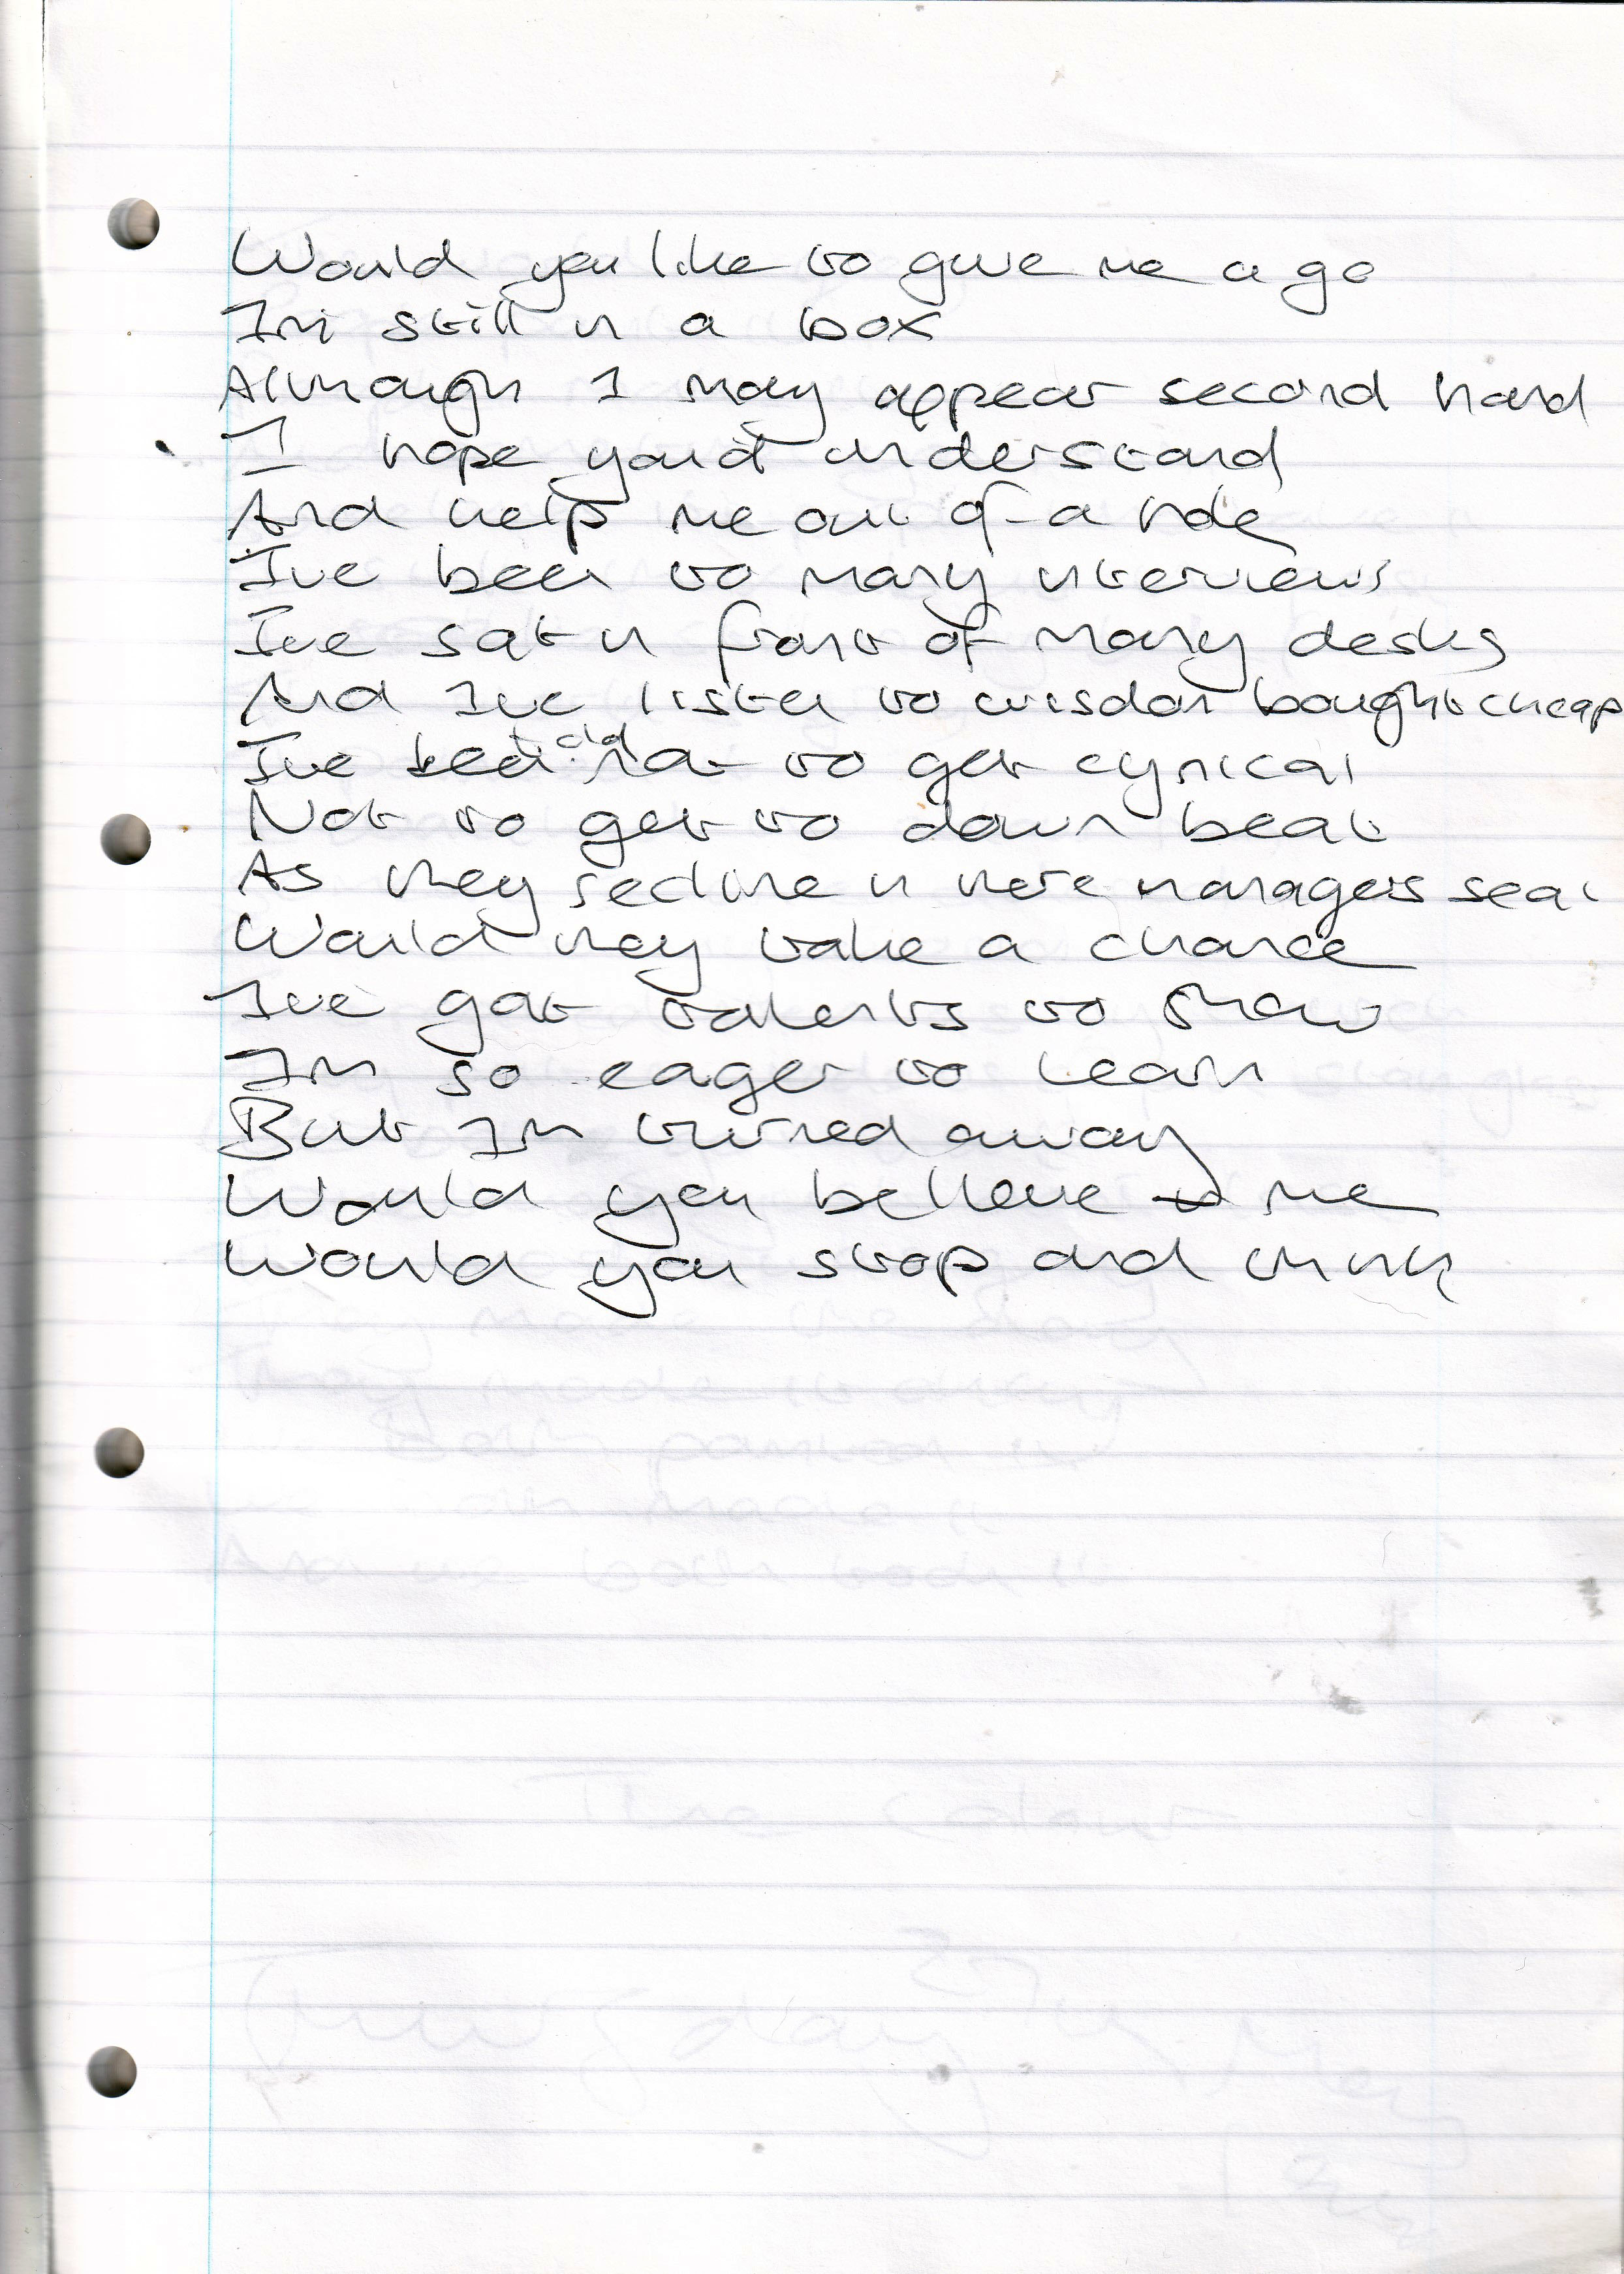 Would you like to give me a go
Im still in a box
Although I may appear second hand
I hope you'd understand
And help me out of a hole
Ive been to many interviews
Ive sat in front of many desks
And Ive listen to wisdom bought cheap
Ive not to get cynical
Not to get to down beat
As they recline in there managers seat
Would they take a chance
Ive got talents to show
Im so eager to learn
But Im turned away
Would you believe me
Would you stop and think